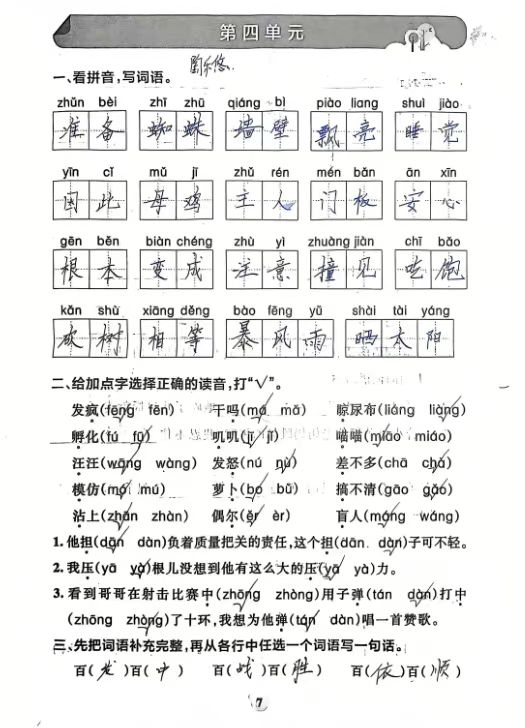 第四单元
一、看拼音,写词语。
zhǔn bèi zhī zhū qiáng bì piào liang shuì jiào
准备 蜘蛛 墙壁 飘亮 睡觉
yīn cǐ mǔ jī zhǔ rén mén bǎn ān xīn
因此 母鸡 主人 门板 安心
gēn běn biàn chéng zhù yì zhuàng jiàn chī bǎo
根本 变成 注意 撞见 吃饱
kǎn shù xiāng děng bào fēng yǔ shài tài yáng
砍树 相等 暴风雨 晒太阳
二、给加点字选择正确的读音,打“√”。
发疯(fēng fēn) 干吗(má mǎ) 晾尿布(liáng liàng)
孵化(fú fū) 叽叽(jī jǐ) 喵喵(miāo miáo)
汪汪(wāng wàng) 发怒(nú nù) 差不多(chā chà)
模仿(mó mú) 萝卜(bo bǔ) 搞不清(gāo gǎo)
沾上(zhān zhàn) 偶尔(ěr èr) 盲人(máng wáng)
1.他担(dān dàn)负着质量把关的责任,这个担(dān dàn)子可不轻。
2.我压(yā yà)根儿没想到他有这么大的压(yā yà)力。
3.看到哥哥在射击比赛中(zhōng zhòng)用子弹(tán dàn)打中
(zhōng zhòng)了十环,我想为他弹(tán dàn)唱一首赞歌。
三、先把词语补充完整,再从各行中任选一个词语写一句话。
百(发)百(中) 百(战)百(胜) 百(依)百(顺)
7